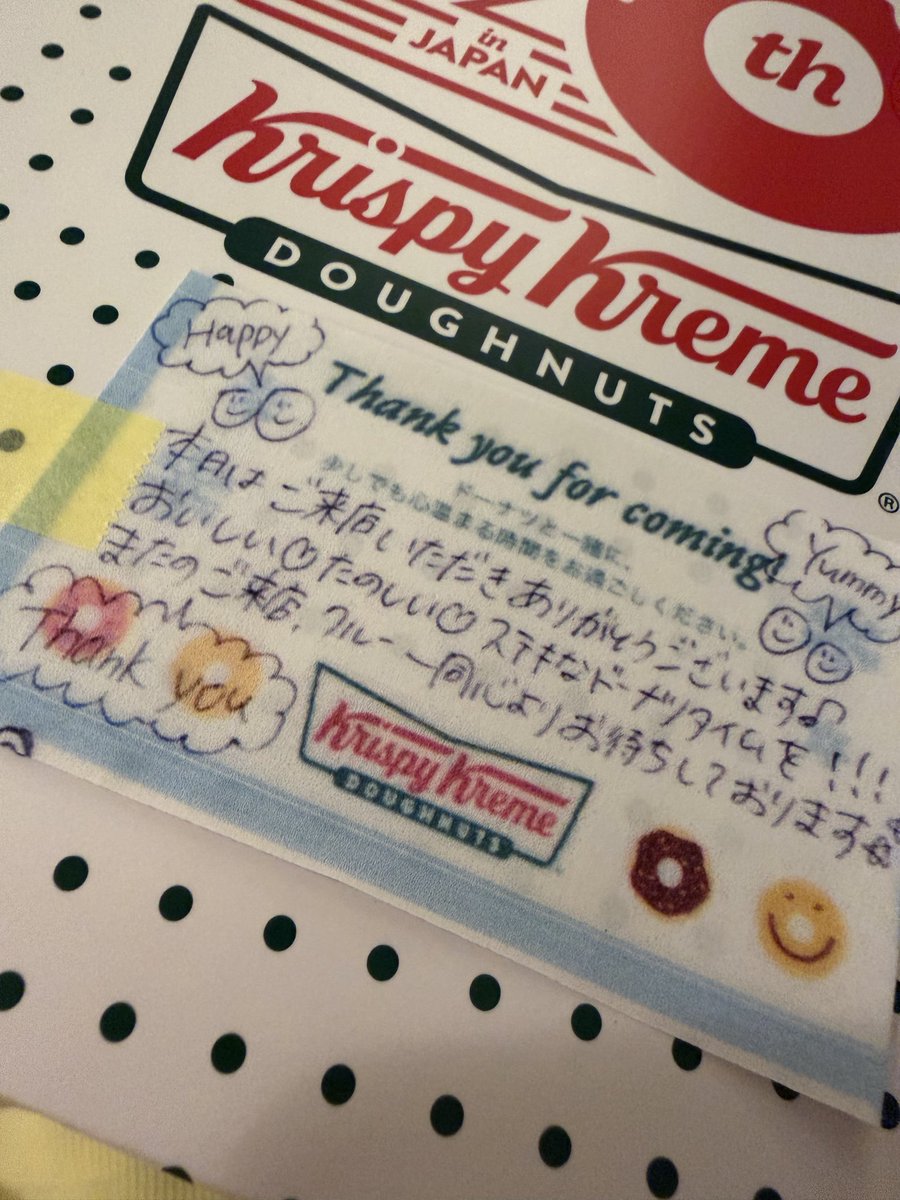 in
JAPAN
th
Krispy Kreme
DOUGHNUTS
®
Happy
Thank you for coming!
ドーナツと一緒に、
少しでも心温まる時間をお過ごしください。
Yummy
本日はご来店いただきありがとうございます♪
おいしい♡たのしい♡ステキなドーナツタイムを!!!
またのご来店、クルー一同心よりお待ちしております
Thank you
Krispy Kreme
DOUGHNUTS